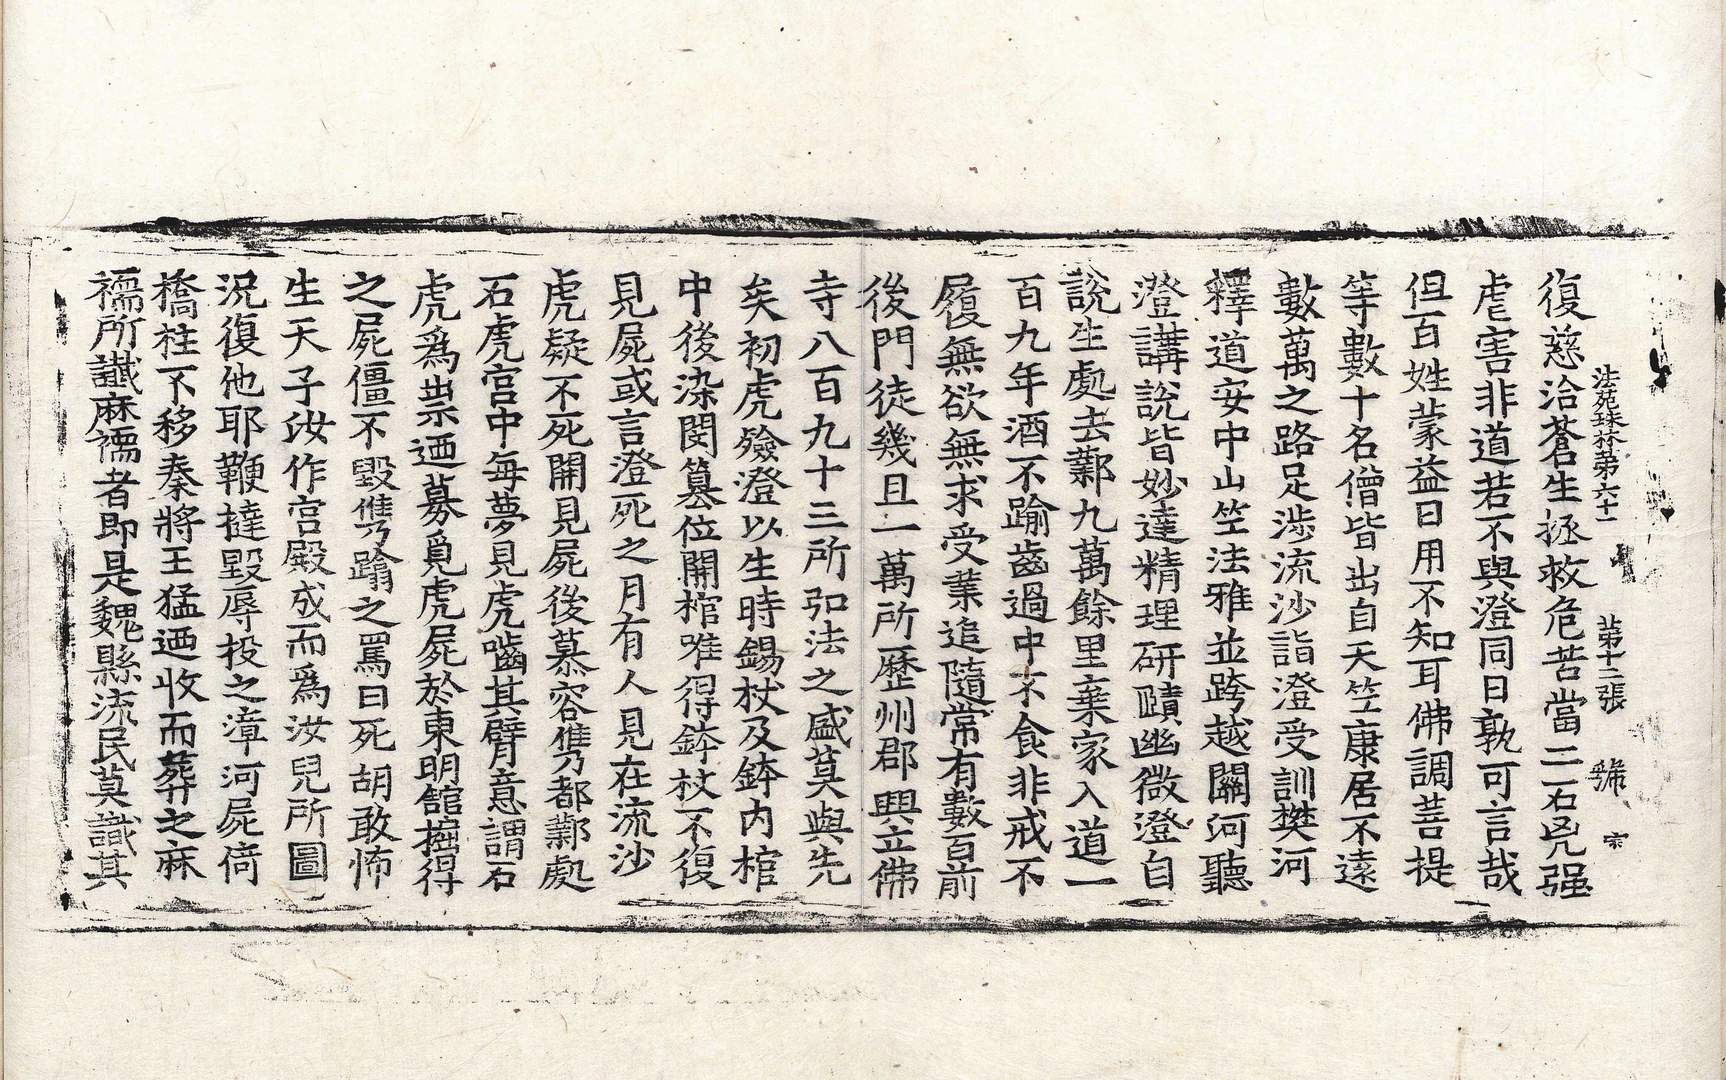 法苑珠林第六十一 第十三張 號 宗
復慈洽蒼生拯救危苦當二石兇强
虐害非道若不與澄同日孰可言哉
但百姓蒙益日用不知耳佛調菩提
等數十名僧皆出自天竺康居不遠
數萬之路足渉流沙詣澄受訓樊河
釋道安中山竺法雅並跨越關河聽
澄講說皆妙達精理研賾幽微澄自
說生處去鄴九萬餘里棄家入道一
百九年酒不踰齒過中不食非戒不
履無欲無求受業追隨常有數百前
後門徒幾且一萬所歷州郡興立佛
寺八百九十三所弘法之盛莫與先
矣初虎殮澄以生時錫杖及鉢內棺
中後染閔篡位開棺唯得鉢杖不復
見屍或言澄死之月有人見在流沙
虎疑不死開見屍後慕容㒞都鄴處
石虎宮中每夢見虎嚙其臂意謂石
虎爲祟迺募覓虎屍於東明舘掘得
之屍僵不毀㒞蹋之罵曰死胡敢怖
生天子汝作宮殿成而爲汝兒所圖
況復他耶鞭撻毀辱投之漳河屍倚
橋柱不移秦將王猛迺收而葬之麻
襦所讖麻襦者即是魏縣流民莫識其